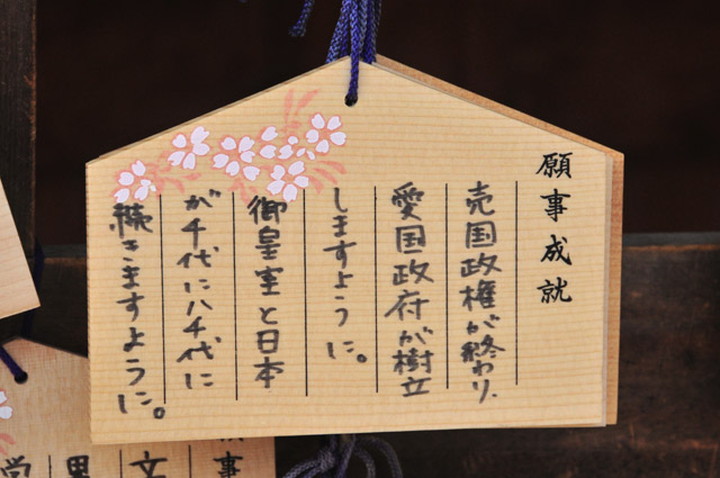 願事成就
売国政権が終わり、
愛国政府が樹立
しますように。
御皇室と日本
が千代に八千代に
続きますように。
願事
文
男